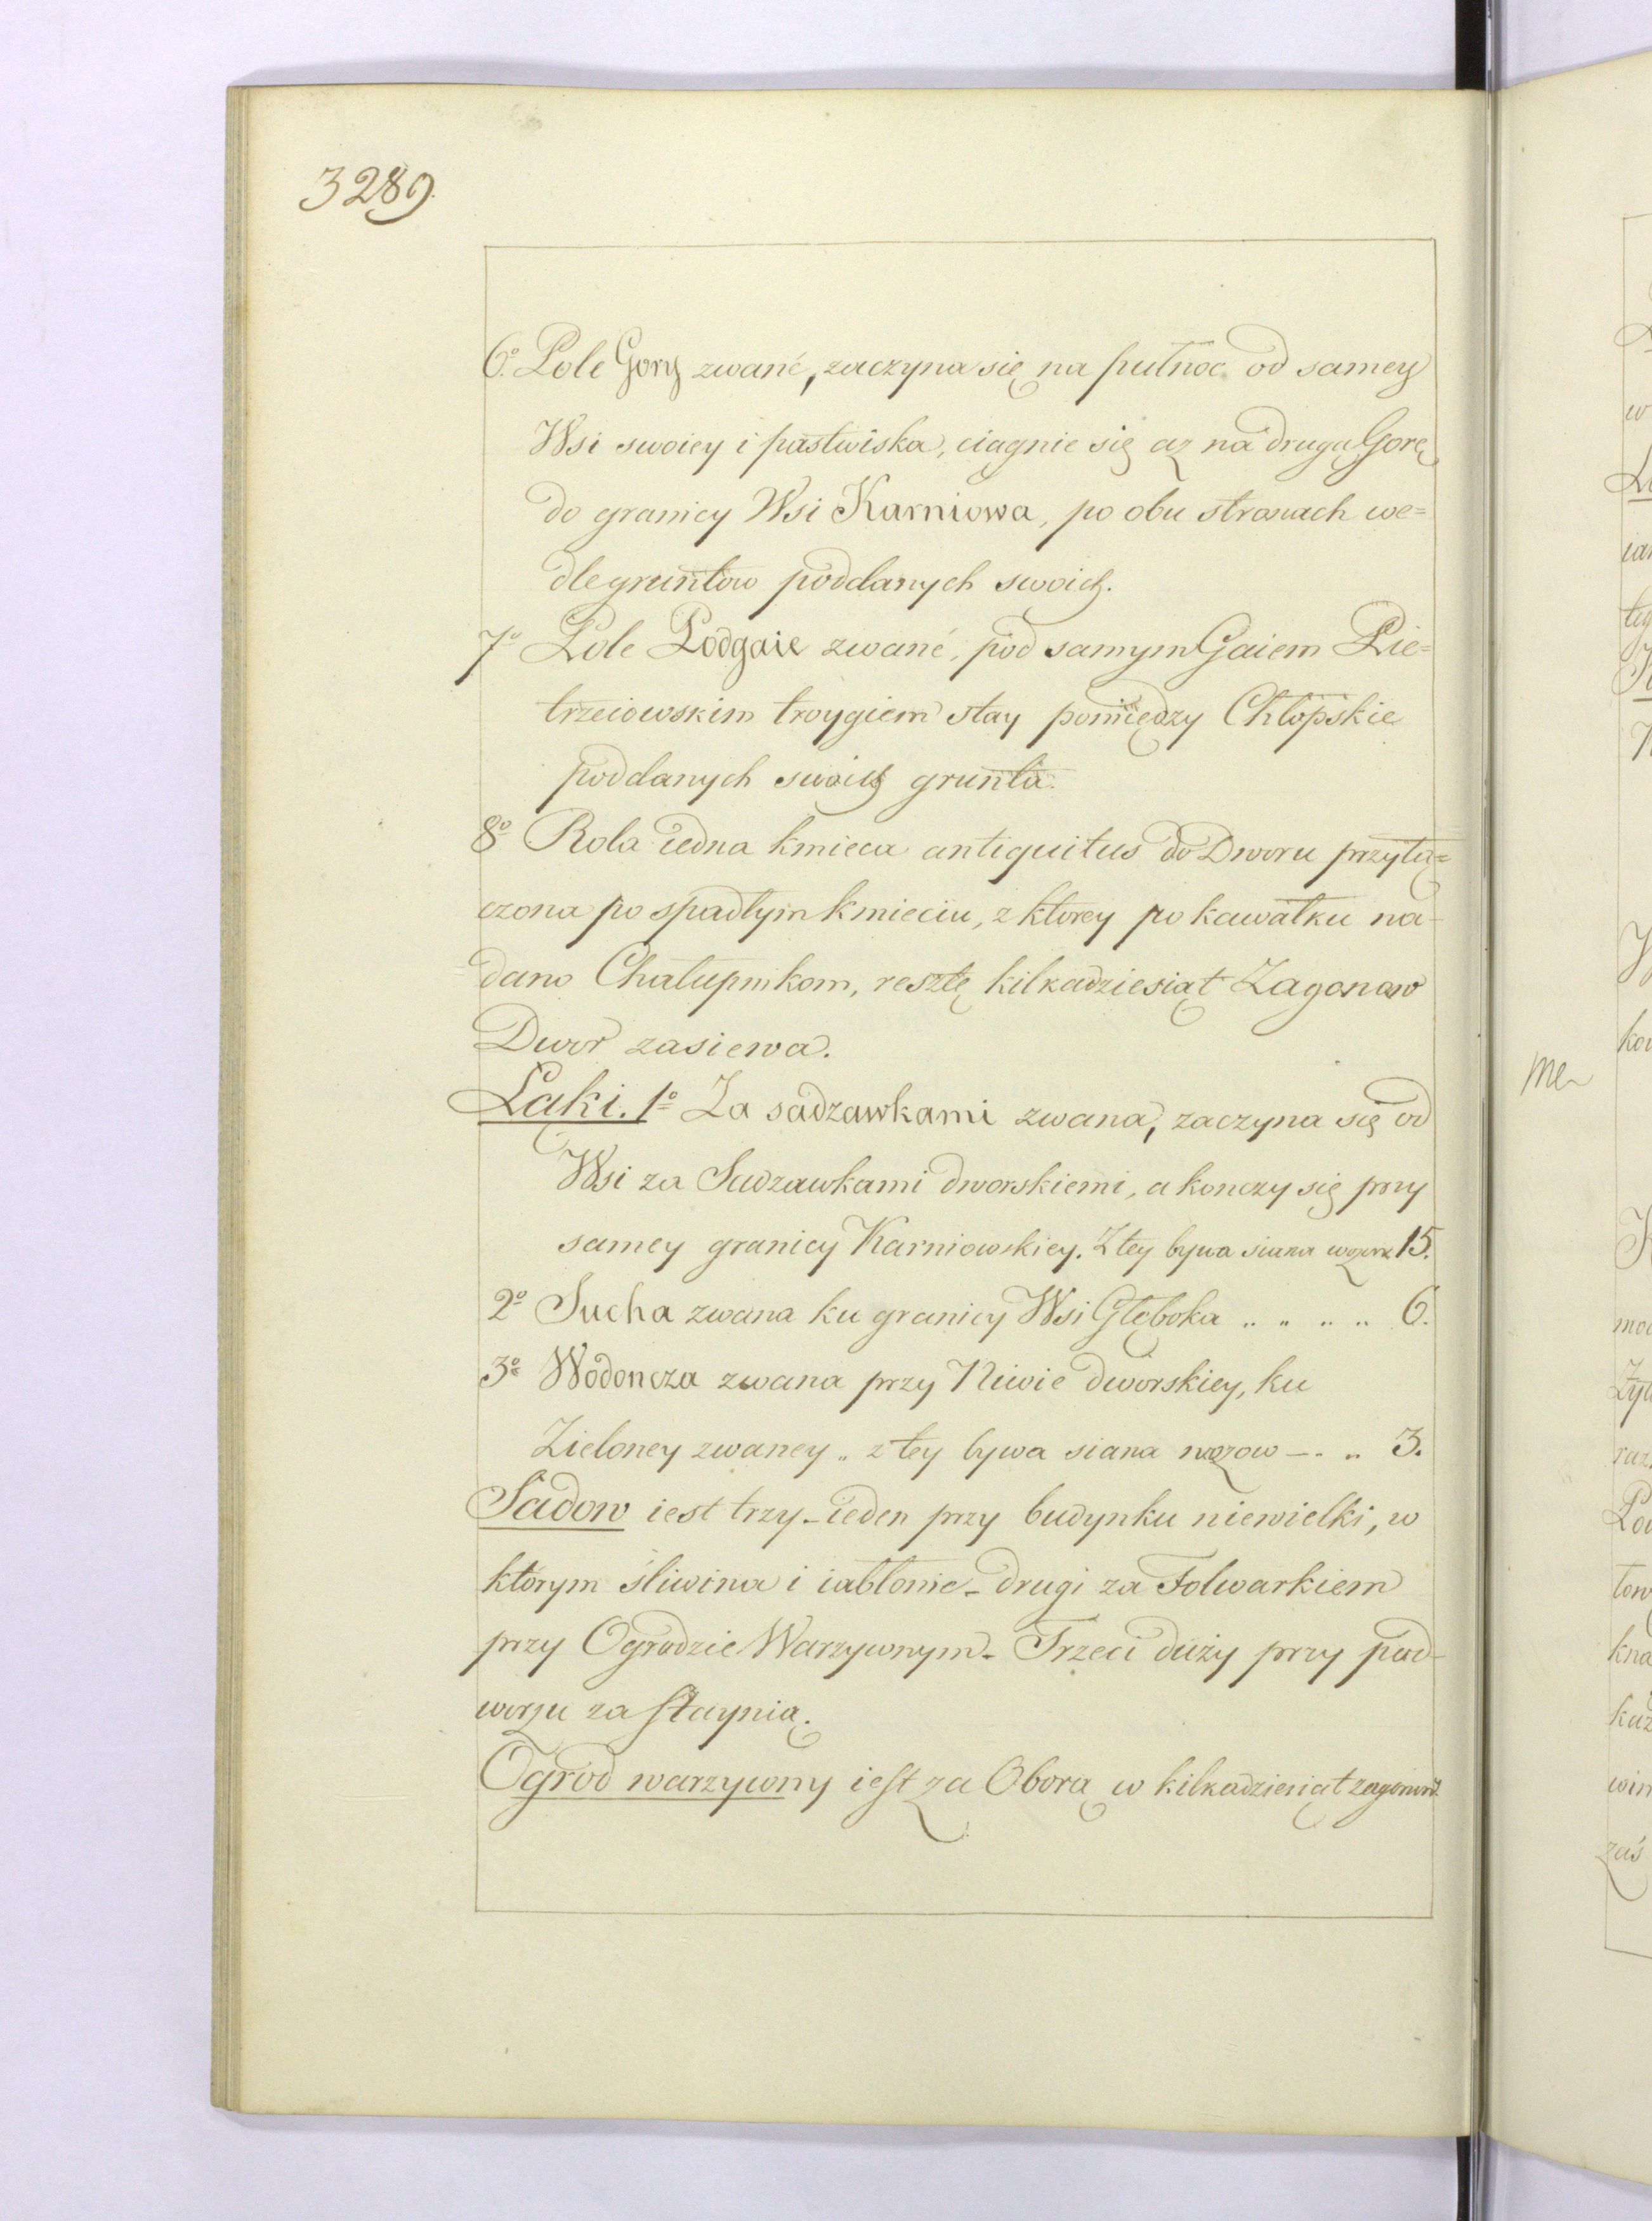 3289.
6o. Pole Gory zwané, zaczyna się na pułnoc od samey
Wsi swoiey i pastwiska, ciagnie się aż na drugą Gorę
do granicy Wsi Karniowa, po obu stronach we=
dle gruntow poddanych swoich.
7o Pole Podgaie zwané, pod samym Gaiem Pie=
trzeiowskim troygiem stay pomiędzy Chłopskie
poddanych swoich grunta.
8o Rola iedna kmieca antiquitus do Dworu przyłą=
czona po spadłym kmieciu, z ktorey po kawałku na-
dano Chałupnikom, resztę kilkadziesiąt Zagonow
Dwor zasiewa.
Łąki. 1o Za sadzawkami zwana, zaczyna się od
Wsi za Sadzawkami dworskiemi, a konczy się przy
samey granicy Karniowskiey. Z tey bywa siana wozow 15.
2o Sucha zwana ku granicy Wsi Głęboka .. .. .. .. 6.
3o Wodoncza zwana przy Niwie dworskiey, ku
Zieloney zwaney .. z tey bywa siana wozow —. .. 3.
Sadow iest trzy - ieden przy budynku niewielki, w
którym śliwina i iabłonie - drugi za Folwarkiem
przy Ogrodzie Warzywnym - Trzeci duży przy pod-
worzu za staynią.
Ogrod warzywny iest za Oborą w kilkadziesiąt zagonow.